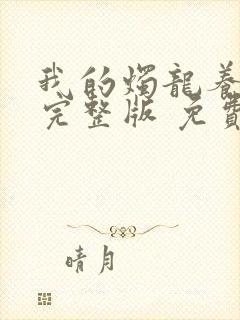 我的燭龍養
完整版 免費
晴月